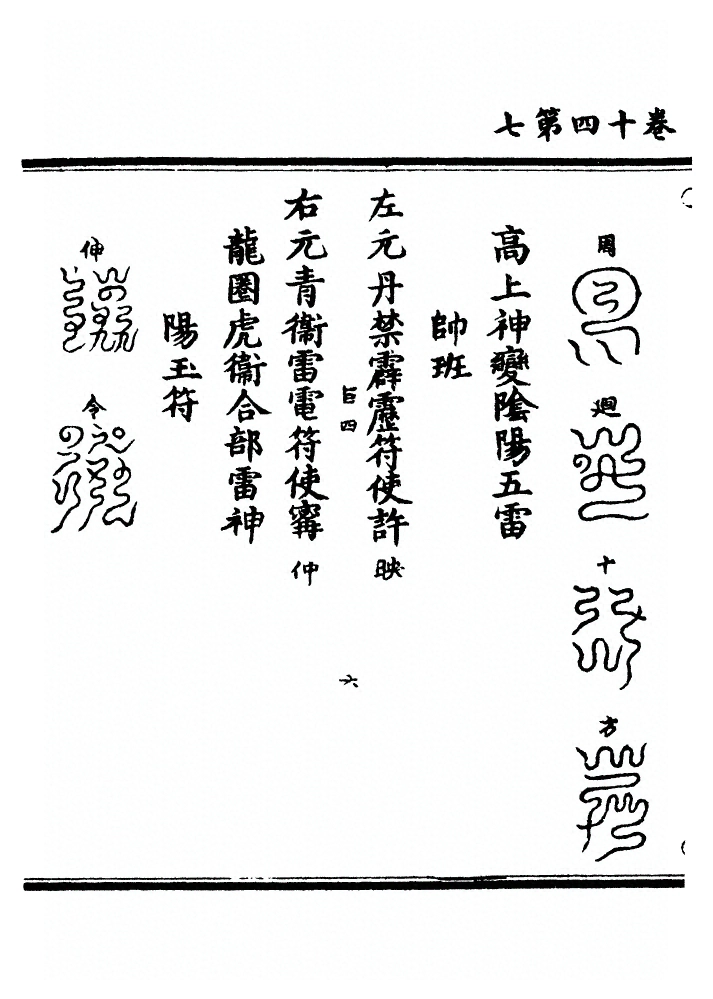 卷十四第七
周
廻
十
方
高上神變陰陽五雷
帥班
左元丹禁霹靂符使許映
臣四
六
右元青衞雷電符使甯仲
龍圈虎衞合部雷神
陽玉符
伸
令